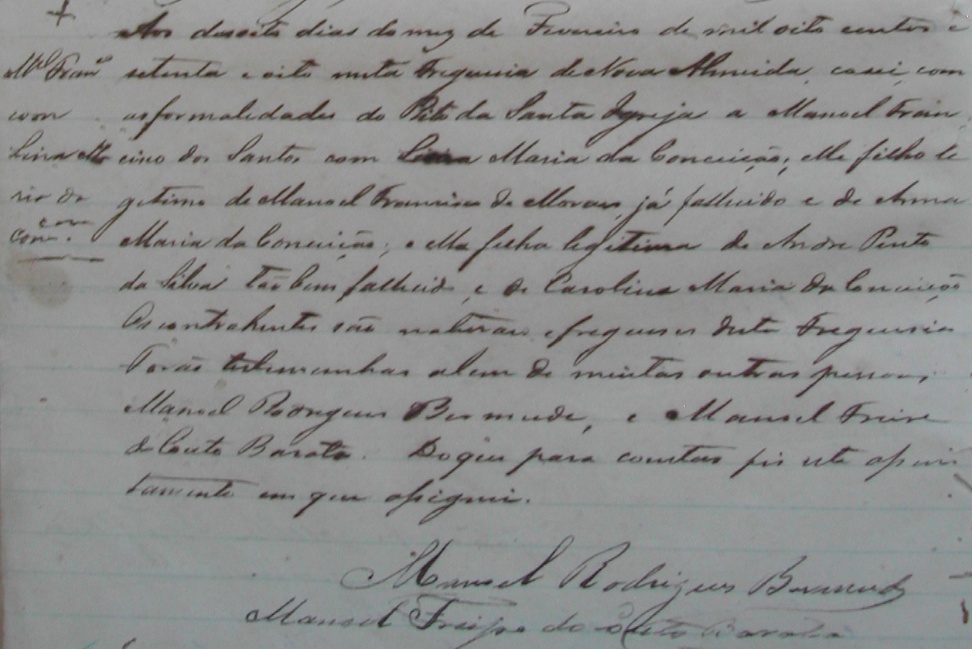 Aos desoito dias do mez de Fevereiro de mil oito centos e
M.el Fran.co
setenta e oito nesta Freguesia de Nova Almeida, casei, com
com
as formalidades do Rito da Santa Igreja a Manoel Fran
Lina Ma
cino dos Santos com Lina Maria da Conceição; elle filho le
ria da
gitimo de Manoel Francisco de Moraes já fallecido e de Anna
Con
Maria da Conceição; e ella filha legitima de Andre Pinto
da Silva tão bem fallecido, e de Carolina Maria da Conceição
Os contrahentes são naturaes e freguezes desta Freguesia
Forão testemunhas alem de muitas outras pessoas,
Manoel Rodrigues Bermude, e Manoel Freire
do Couto Barata. Do que para constar fiz este assen
tamento em que assignei.
Manoel Rodrigues Bermude
Manoel Freire do Couto Barata